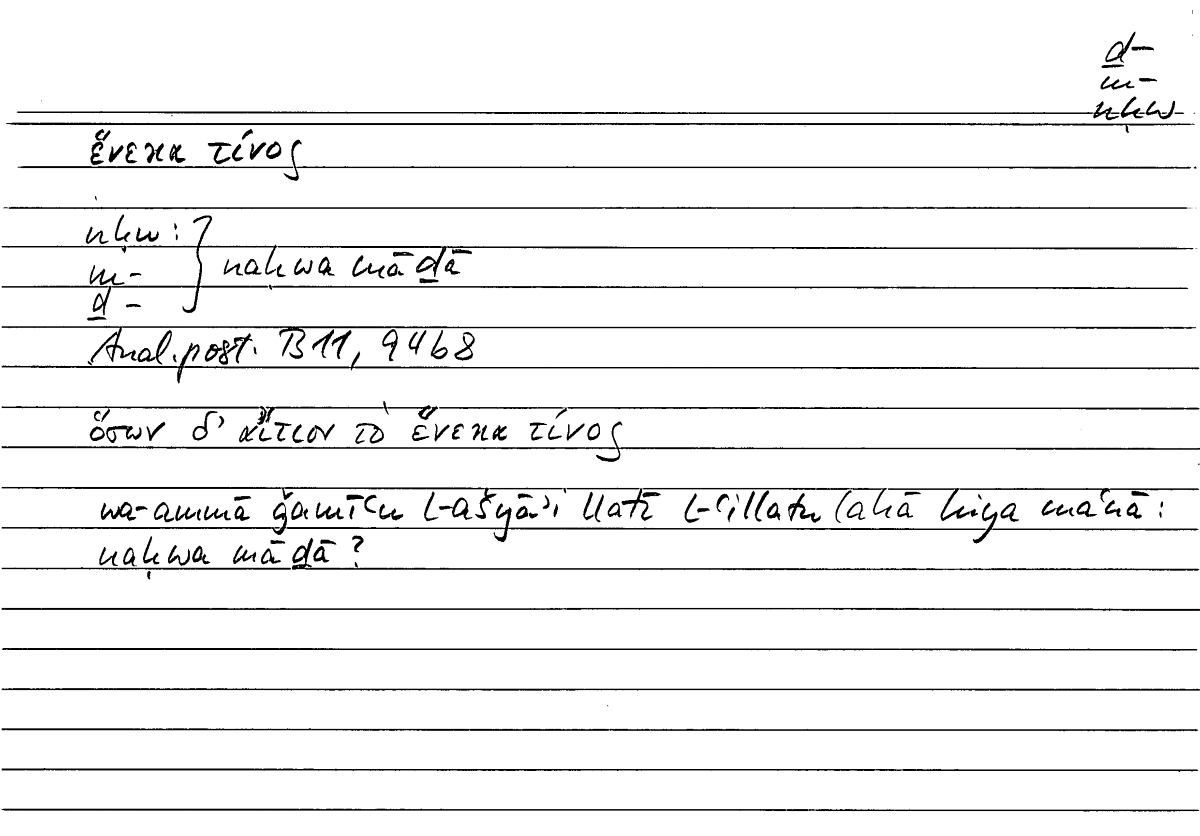 ḏ-
m-
nḥw
ἕνεκα τίνος
nḥw:
m- } naḥwa māḏā
ḏ-
Anal. post. B 11, 94b8
ὅσων δ' αἴτιον τὸ ἕνεκα τίνος
wa-ammā ǧamīʿu l-ašyāʾi llatī l-ʿillatu lahā hiya maʿnā:
naḥwa māḏā?